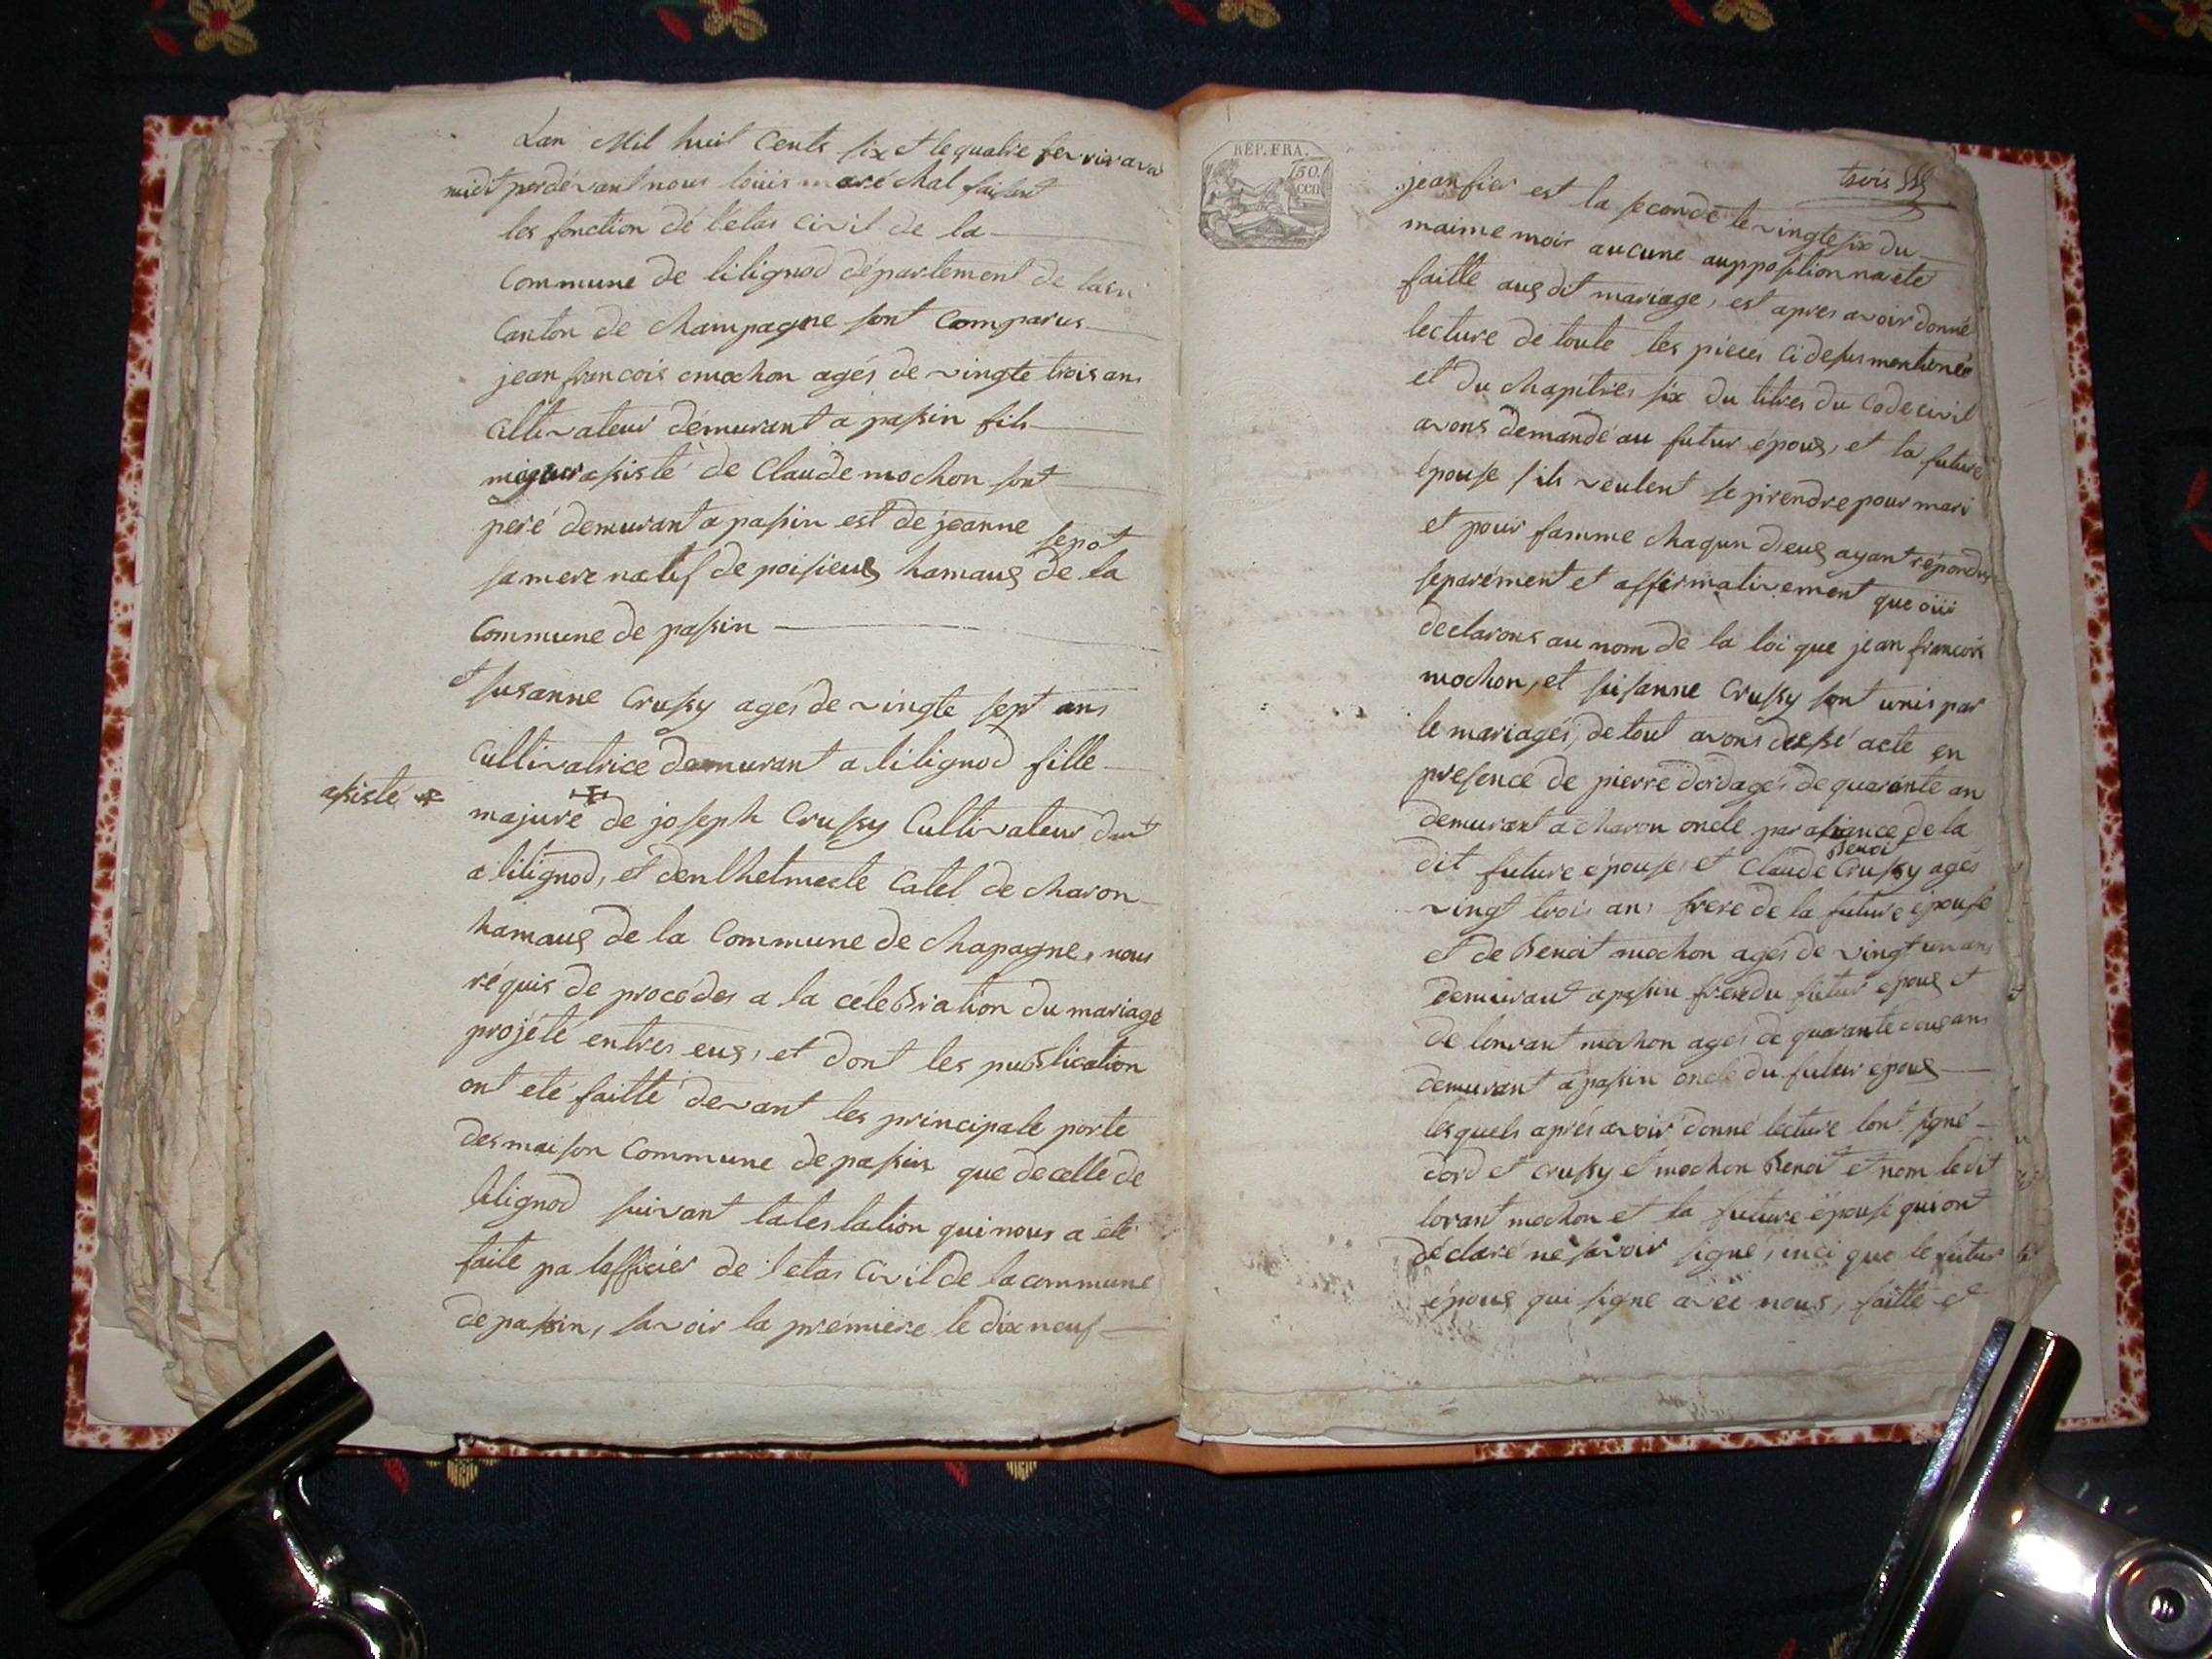 Lan Mil huit Cents six et le quatre fevrir avan
midit pardévant nous loüis maréchal faisant
les fonction dé létas civil de la
Commune de lilignod département de lain
Canton de Champagne sont Comparus
jean francois mochon agés de vingte trois ans
Cultivateur démurant a passin fils
migeur asisté de Claude mochon sont
peré demurant a passin est de jeanne sepot
sa mere natif de poisieux hamaux de la
Commune de passin
et susanne Crussy agés de vingte sept ans
Cultivatrice demurant a lilignod fille
asisté
majure de joseph Crussy Cultivateur dant
a lilignod, et Catel de charon
hamaux de la Commune de Chapagne, nous
réquis de procéder a la célébration du mariage
projété entres eux, et dont les publication
ont eté faitte devant les principale porte
des maison Commune de passin que de celle de
lilignod suivant latestation qui nous a été
faite pa lofficier de letas Civil de la commune
de passin, savoir la prémiere le dix neuf
REP. FRA.
50. cen
trois
janfier est la seconde le vingte six du
maime mois aucune aupposition na eté
faitte aux dit mariage, est apres avoir donné
lecture de toute les pieces ci desus mentionés
et du chapitres six du titres du Code civil
avons demandé au futur époux, et la future
épouse sils veulent se prendre pour mari
et pour famme chaqun d'eux ayant répondu
séparément et affirmativement que oüi
declarons au nom de la loi que jean francois
mochon, et susanne Crussy sont unis par
le mariagés, de tout avons acte en
présencé de pierre dord agés de quarante an
demurant a charon oncle par aliance de la
dit future épouse, et Claude Benoit Crussy agés
vingt trois ans frere de la future épouse
et de Benoit mochon agés de vingt un ans
demurant a passin frere du futur époux et
de lorrant mochon agés de quarante ans
demurant a passin oncle du futur époux
lesquels aprés avoir donné lecture lont signé
dord et Crussy et mochon Benoit et nom ledit
lorant mochon et la future épouse qui ont
déclaré ne savoir signé, inci que le futur
époux qui signe avec nous, faitte et